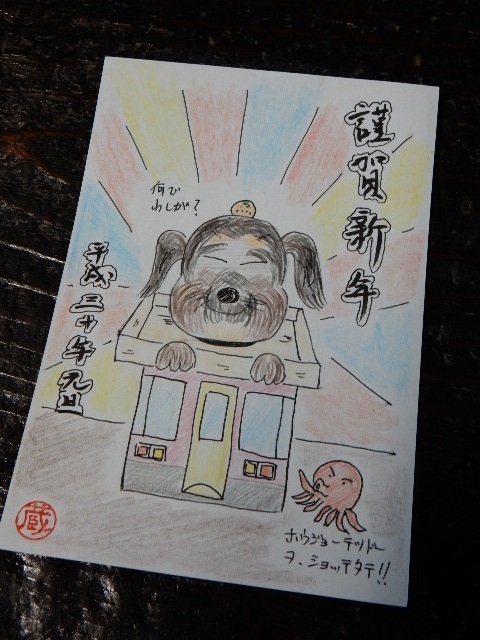 謹賀新年
何で
わしが?
平成三十年元旦
ホウジョーテツドー
ヲ、ショッテタテ!!
蔵